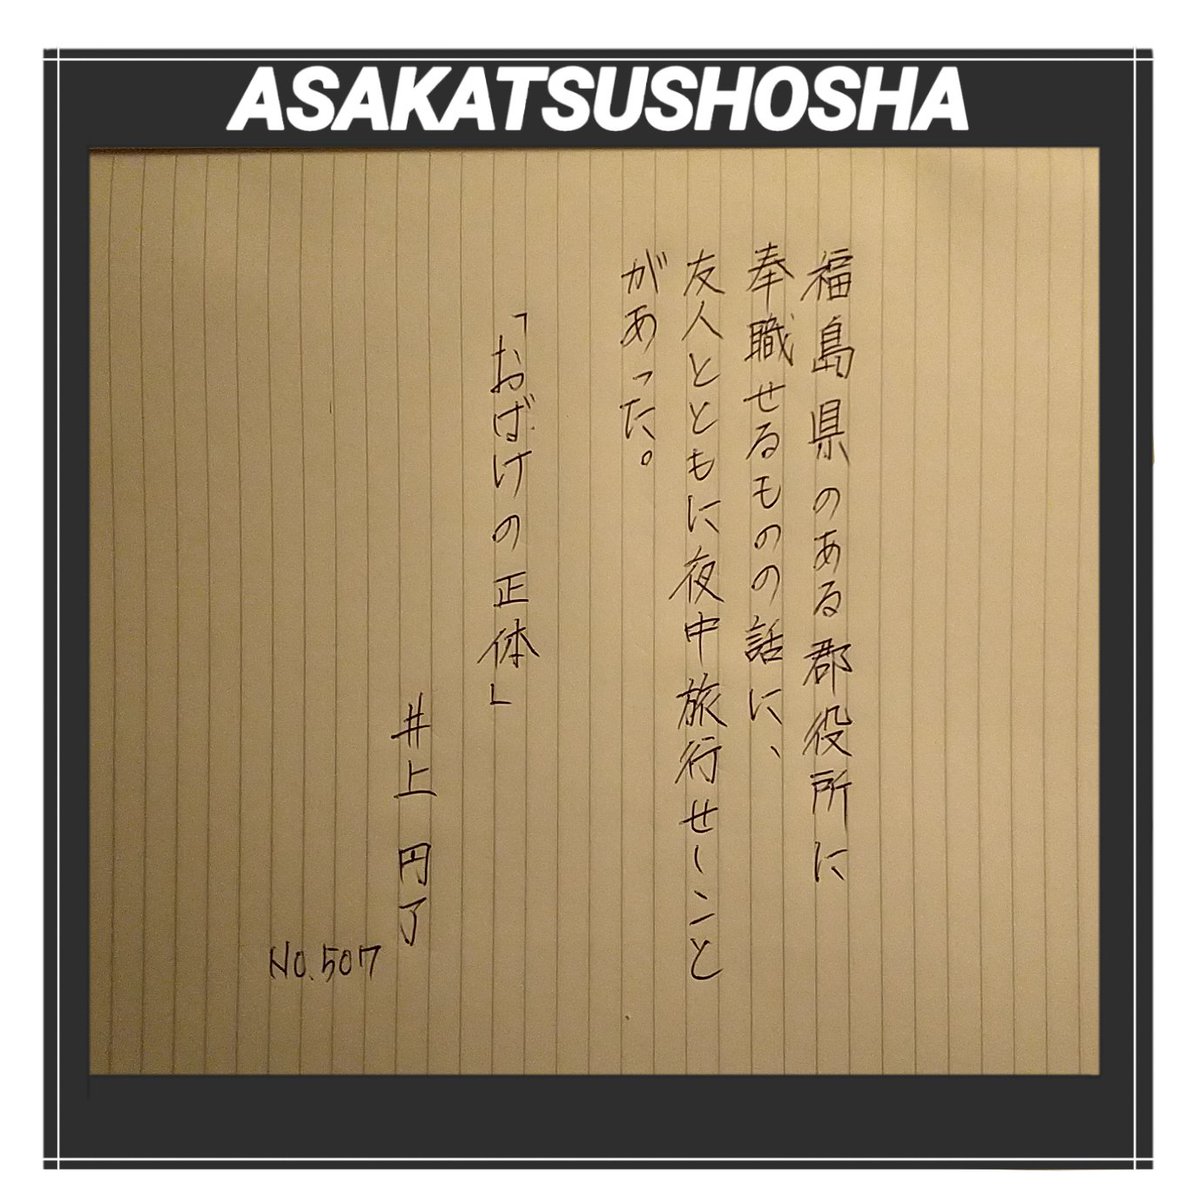 ASAKATSUSHOSHA
福島県のある郡役所に
奉職せるものの話に、
友人とともに夜中旅行せしこと
があった。
「おばけの正体」
井上円了
No.507